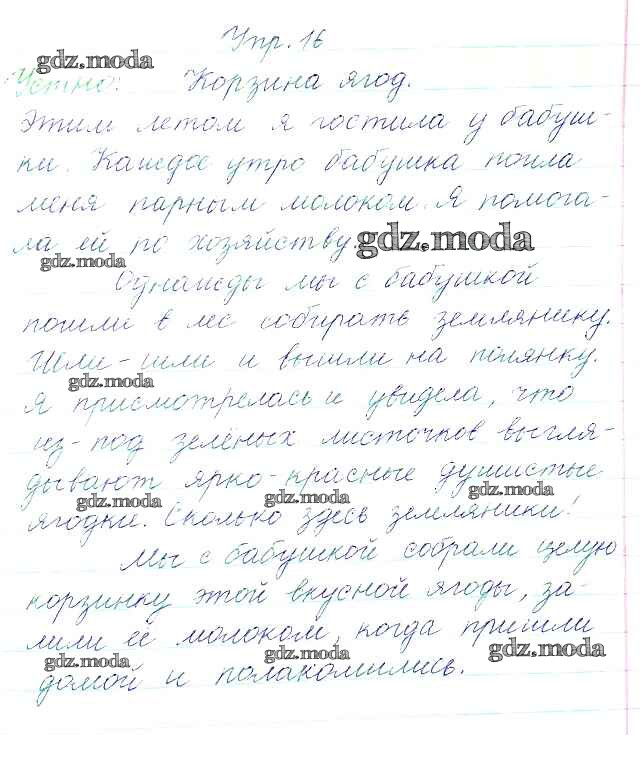 Упр. 16
gdz.moda
Устно: Корзина ягод.
Этим летом я гостила у бабуш-
ки. Каждое утро бабушка поила
меня парным молоком. Я помога-
ла ей по хозяйству. gdz.moda
gdz.moda
Однажды мы с бабушкой
пошли в лес собирать землянику.
Шли-шли и вышли на полянку.
gdz.moda
Я присмотрелась и увидела, что
из-под зелёных листочков выгля-
дывают ярко-красные душистые
gdz.moda gdz.moda gdz.moda
ягодки. Сколько здесь земляники!
Мы с бабушкой собрали целую
корзинку этой вкусной ягоды, за-
лили её молоком, когда пришли
gdz.moda gdz.moda gdz.moda
домой и полакомились.